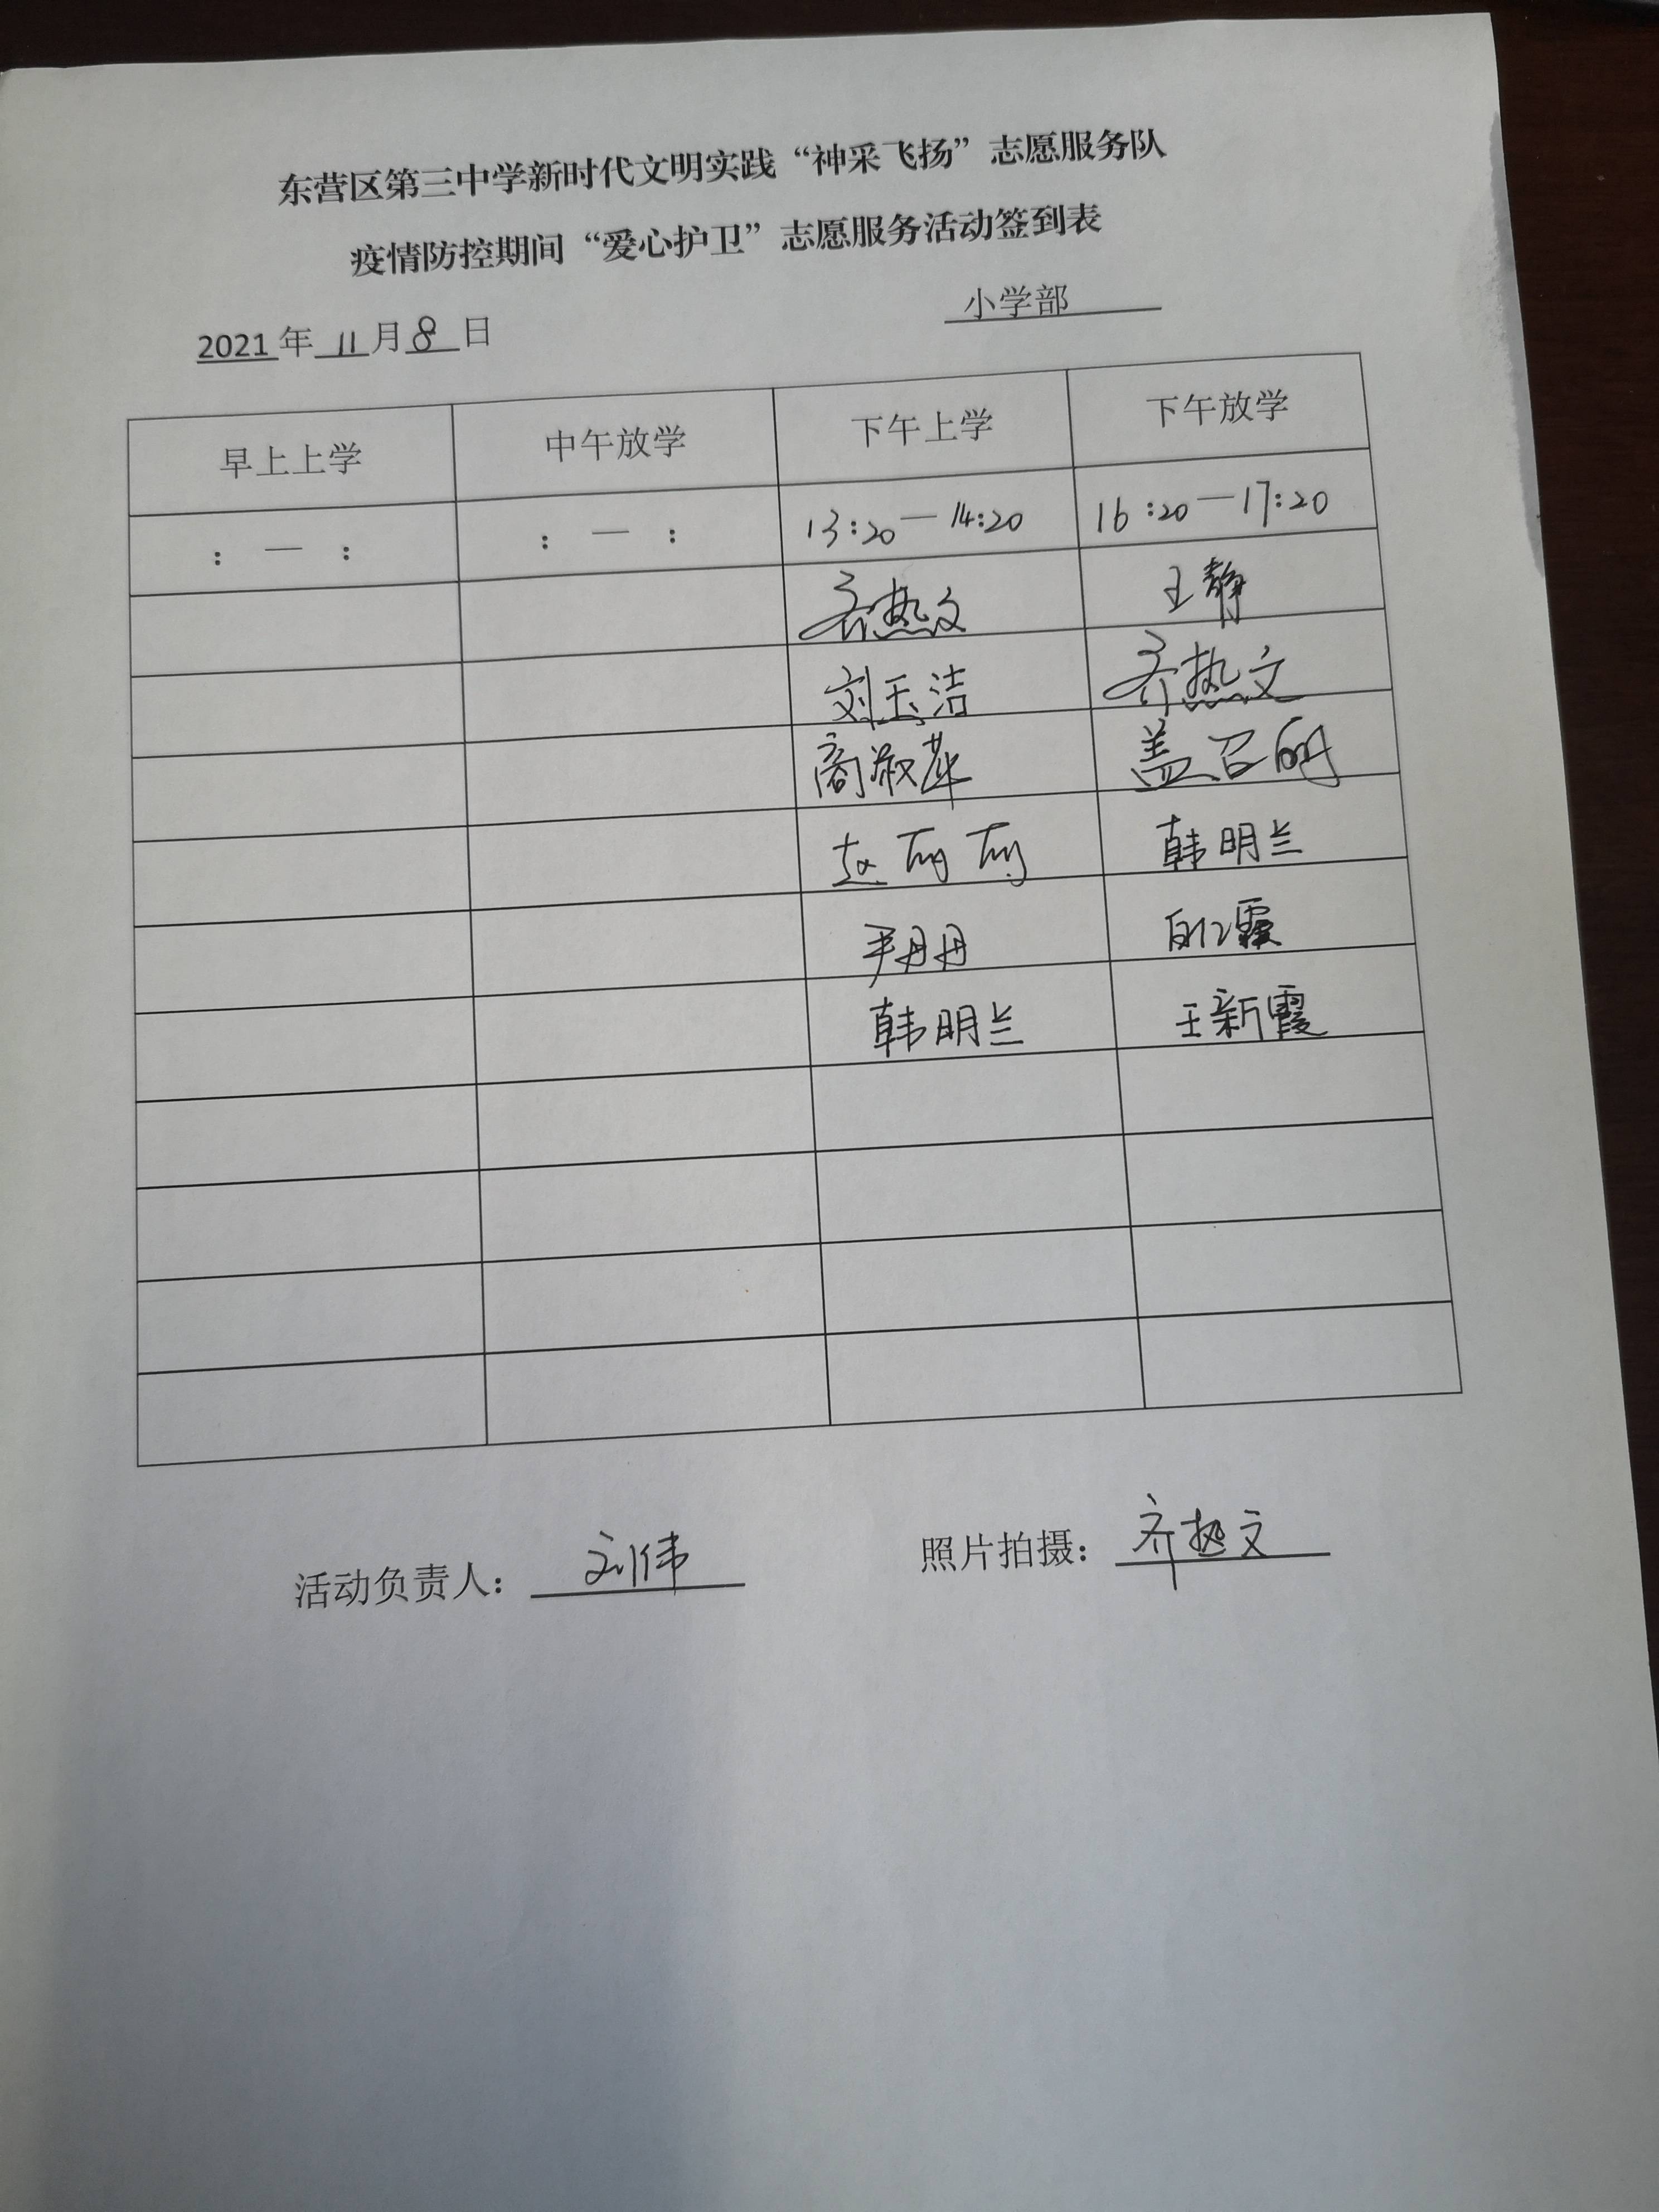 东营区第三中学新时代文明实践“神采飞扬”志愿服务队
疫情防控期间“爱心护卫”志愿服务活动签到表
2021年11月8日 小学部
早上上学 中午放学 下午上学 下午放学
: — : : — : 13:20—14:20 16:20—17:20
齐热文 王静
刘玉洁 齐热文
商淑萍 盖召明
赵丽丽 韩明兰
尹丹丹 霞
韩明兰 王新霞
活动负责人: 刘伟 照片拍摄: 齐热文